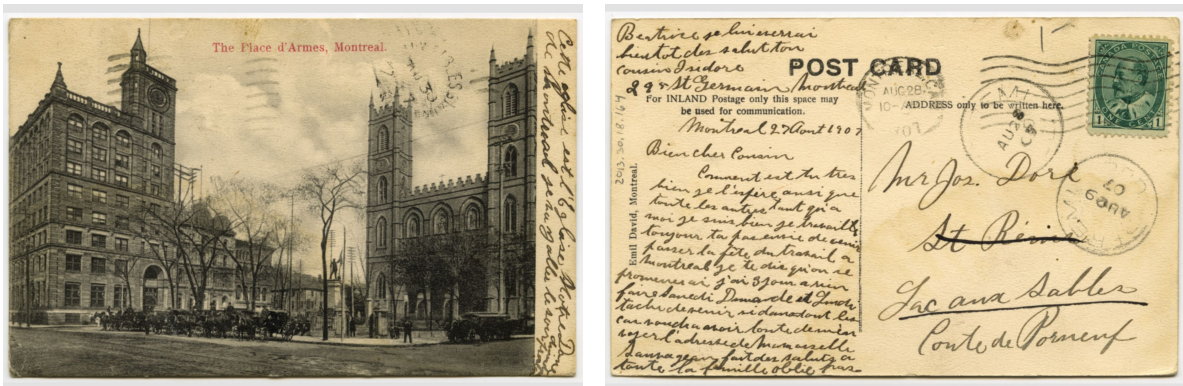 The Place d'Armes, Montreal.
Cette eglise est l'eglise Notre D.
de Montreal je hagalle le soir
Beatrice je lui ecrirai
bientot des salut ton
cousin Isidore
298 St Germain Montreal
POST CARD
For INLAND Postage only this space may
be used for communication.
ADDRESS only to be written here.
Montreal 27 Aout 1907
Bien cher Cousin
Comment est tu tres
bien je l'espère ausi que
toute les autres tant qu'a
moi je suis bien je travaille
toujour ta pas envie de venir
passer la fête du travail a
montreal je te dis qu'on se
promenerai j'ai 3 jour a rien
faire Samedi Dimanche et Lundi
tache de venir si dans tout les
cas voudra avoir toute de m'en
voyer l'adresse de Mamoiselle
Sauvageau fait des saluts a
toute la famille oblie pas
Emil David, Montreal.
2013.30.18.164
MONTREAL
AUG 28
10-
07
AU 28
AU 29
07
CANADA POSTAGE
1 ONE CENT 1
Mr Jos. Doré
St Rémi
Lac aux Sables
Conte de Porneuf